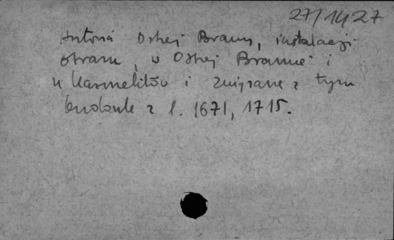 27/1427
Historia Ostrej Bramy, instalacji
obrazu, w Ostrej Bramie i
u Karmelitów i związane z tym
budowle z l. 1671, 1715.